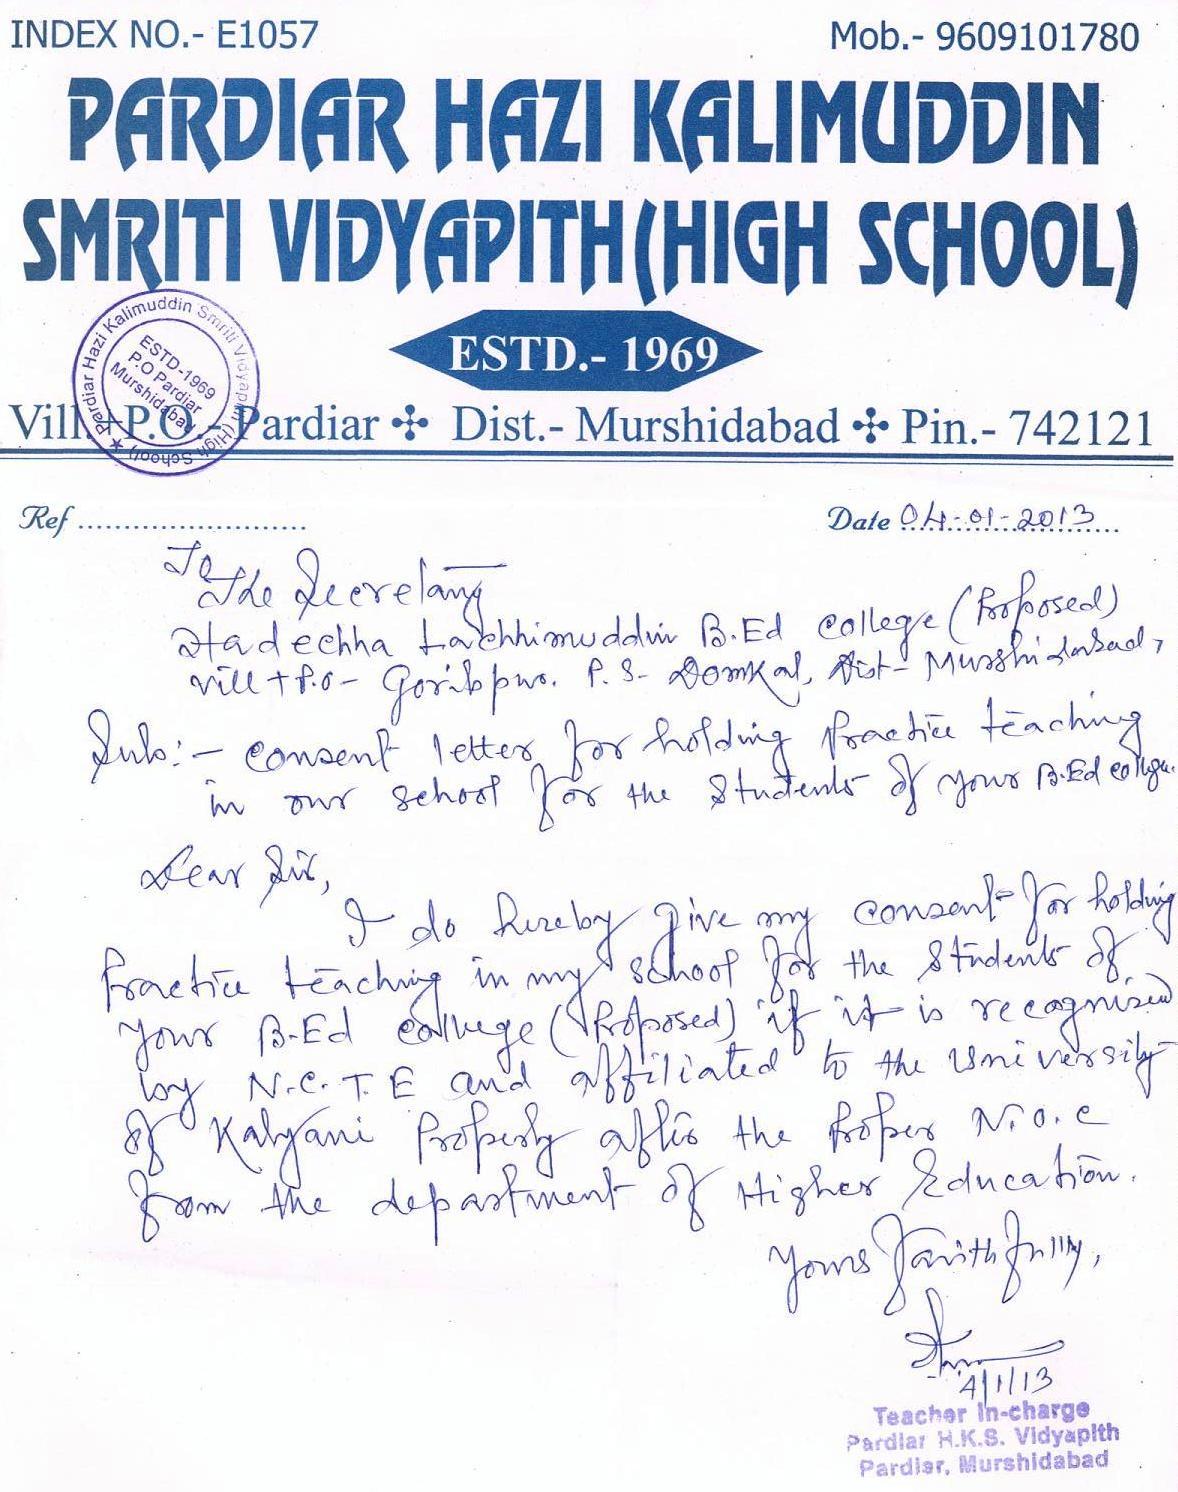 INDEX NO.- E1057 Mob.- 9609101780
PARDIAR HAZI KALIMUDDIN
SMRITI VIDYAPITH(HIGH SCHOOL)
ESTD.- 1969
Pardiar Hazi Kalimuddin Smriti Vidyapith (High School) ★
ESTD-1969
P.O Pardiar
Murshidabad
Vill.+P.O.- Pardiar ✣ Dist.- Murshidabad ✣ Pin.- 742121
Ref ............................ Date 04-01-2013
To
The Secretary
Hadechha Lachhimuddin B.Ed college (Proposed)
vill + P.O - Goribpur. P. S- Domkal, Dist- Murshidabad,
Sub:- consent letter for holding Practice teaching
in our school for the Students of your B.Ed college.
Dear Sir,
I do hereby give my consent for holding
Practice teaching in my school for the Students of
your B.Ed college (Proposed) if it is recognised
by N.C.T.E and affiliated to the University
of Kalyani Properly after the Proper N.O.C
from the department of Higher Education.
Yours faithfully,
4/1/13
Teacher In-charge
Pardiar H.K.S. Vidyapith
Pardiar, Murshidabad